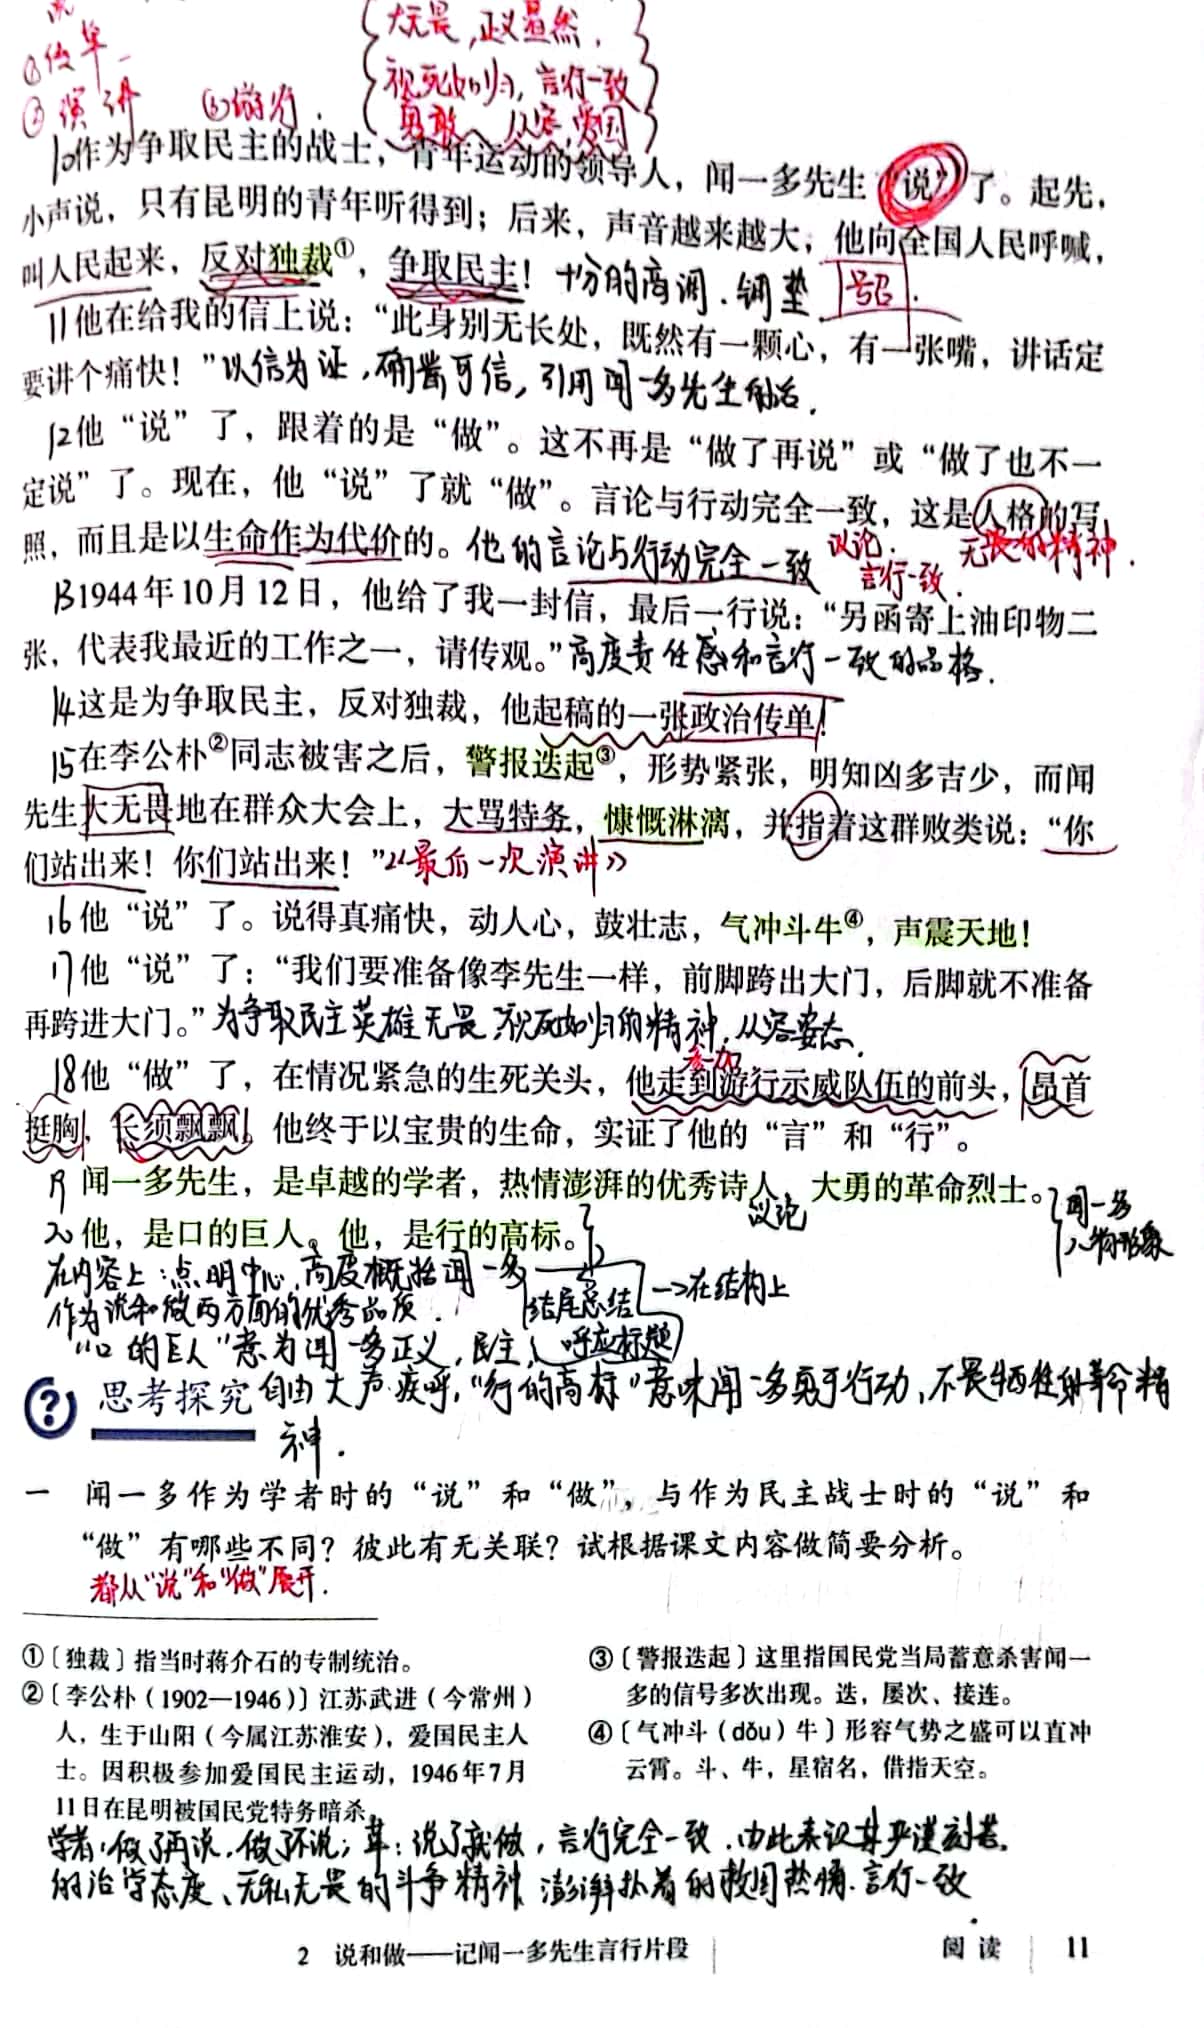 ①做革
②演讲 ③游行.
大无畏,正义显然.
视死如归,言行一致
勇敢、从容,爱国
10作为争取民主的战士，青年运动的领导人，闻一多先生“说”了。起先，
小声说，只有昆明的青年听得到；后来，声音越来越大，他向全国人民呼喊，
叫人民起来，反对独裁①，争取民主！十分的高调.铺垫 号召.
11他在给我的信上说：“此身别无长处，既然有一颗心，有一张嘴，讲话定
要讲个痛快！”以信为证,确凿可信,引用闻一多先生的话.
12他“说”了，跟着的是“做”。这不再是“做了再说”或“做了也不一
定说”了。现在，他“说”了就“做”。言论与行动完全一致，这是人格的写
照，而且是以生命作为代价的。他的言论与行动完全一致 议论. 无畏的精神.
言行一致.
13 1944年10月12日，他给了我一封信，最后一行说：“另函寄上油印物二
张，代表我最近的工作之一，请传观。”高度责任感和言行一致的品格.
14这是为争取民主，反对独裁，他起稿的一张政治传单！
15在李公朴②同志被害之后，警报迭起③，形势紧张，明知凶多吉少，而闻
先生大无畏地在群众大会上，大骂特务，慷慨淋漓，并指着这群败类说：“你
们站出来！你们站出来！”《最后一次演讲》
16他“说”了。说得真痛快，动人心，鼓壮志，气冲斗牛④，声震天地！
17他“说”了：“我们要准备像李先生一样，前脚跨出大门，后脚就不准备
再跨进大门。”为争取民主英雄无畏视死如归的精神,从容姿态.
参加
18他“做”了，在情况紧急的生死关头，他走到游行示威队伍的前头，昂首
挺胸，长须飘飘。他终于以宝贵的生命，实证了他的“言”和“行”。
19闻一多先生，是卓越的学者，热情澎湃的优秀诗人，大勇的革命烈士。
议论 闻一多
人物形象
20他，是口的巨人。他，是行的高标。
在内容上:点明中心,高度概括闻一多
作为说和做两方面的优秀品质.
结尾总结 →在结构上
呼应标题
“口的巨人”意为闻一多正义,民主,
思考探究 自由大声疾呼,“行的高标”意味闻一多勇于行动,不畏牺牲的革命精
神.
一 闻一多作为学者时的“说”和“做”，与作为民主战士时的“说”和
“做”有哪些不同？彼此有无关联？试根据课文内容做简要分析。
都从“说”和“做”展开.
①〔独裁〕指当时蒋介石的专制统治。
②〔李公朴（1902—1946）〕江苏武进（今常州）
人，生于山阳（今属江苏淮安），爱国民主人
士。因积极参加爱国民主运动，1946年7月
11日在昆明被国民党特务暗杀。
③〔警报迭起〕这里指国民党当局蓄意杀害闻一
多的信号多次出现。迭，屡次、接连。
④〔气冲斗（dǒu）牛〕形容气势之盛可以直冲
云霄。斗、牛，星宿名，借指天空。
学者:做了再说,做了不说;革:说了就做,言行完全一致.由此表现其严谨刻苦
的治学态度、无私无畏的斗争精神 澎湃执着的救国热情.言行一致
2 说和做——记闻一多先生言行片段
阅读 11